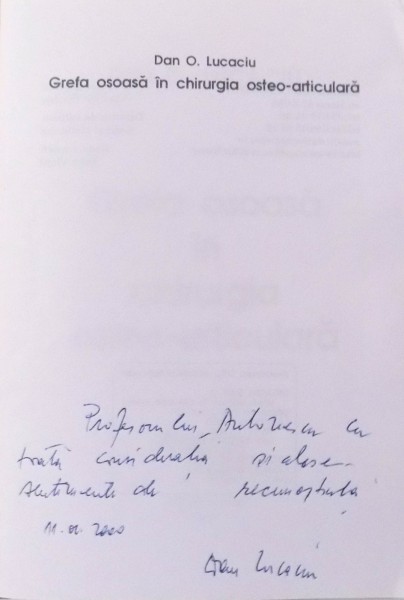 Dan O. Lucaciu
Grefa osoasă în chirurgia osteo-articulară
Profesorului Antonescu cu
toată considerația și alese
sentimente de recunoștință
2000
Dan Lucaciu